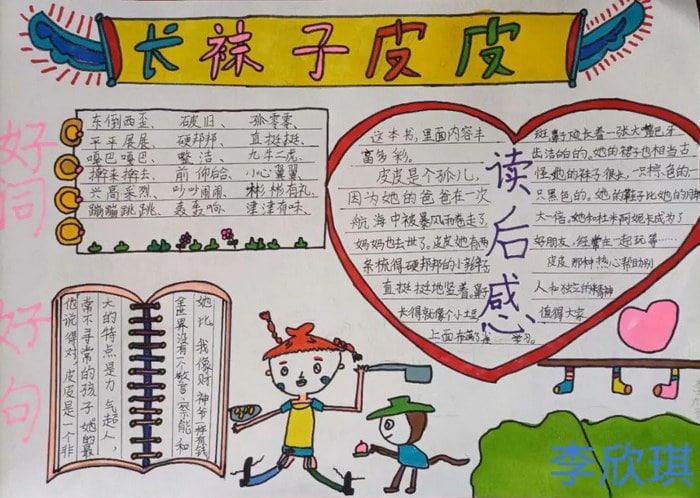 长袜子皮皮
好词
东倒西歪、 破旧、 孤零零、
平平展展、 硬邦邦、 直挺挺、
嘎巴嘎巴、 整洁、 九牛二虎、
挤来挤去、 前仰后合、 小心翼翼、
兴高采烈、 吵吵闹闹、 彬彬有礼、
蹦蹦跳跳、 轰轰响、 津津有味、
好句
他说得对,皮皮是一个非
常不寻常的孩子她的最
大的特点是力气超人,
全世界没有一个警察能和
她比。我像财神爷一样有钱
读后感
这本书,里面内容丰
富多彩。
皮皮是个孤儿,
因为她的爸爸在一次
航海中被暴风雨卷走了,
妈妈也去世了。皮皮她有两
条梳得硬邦邦的小辫子
直挺挺地竖着。鼻子
长得就像个小土豆
上面布满了
斑鼻子边长着一张大嘴巴牙
出洁白的。她的裙子也相当古
怪她的袜子很长,一只棕色的一
只黑色的。她的鞋子比她的脚
大一倍,她和杜米阿妮卡成为了
好朋友,经常在一起玩等……
皮皮那种热心帮助别
人和独立的精神
值得大家
学习。
李欣琪